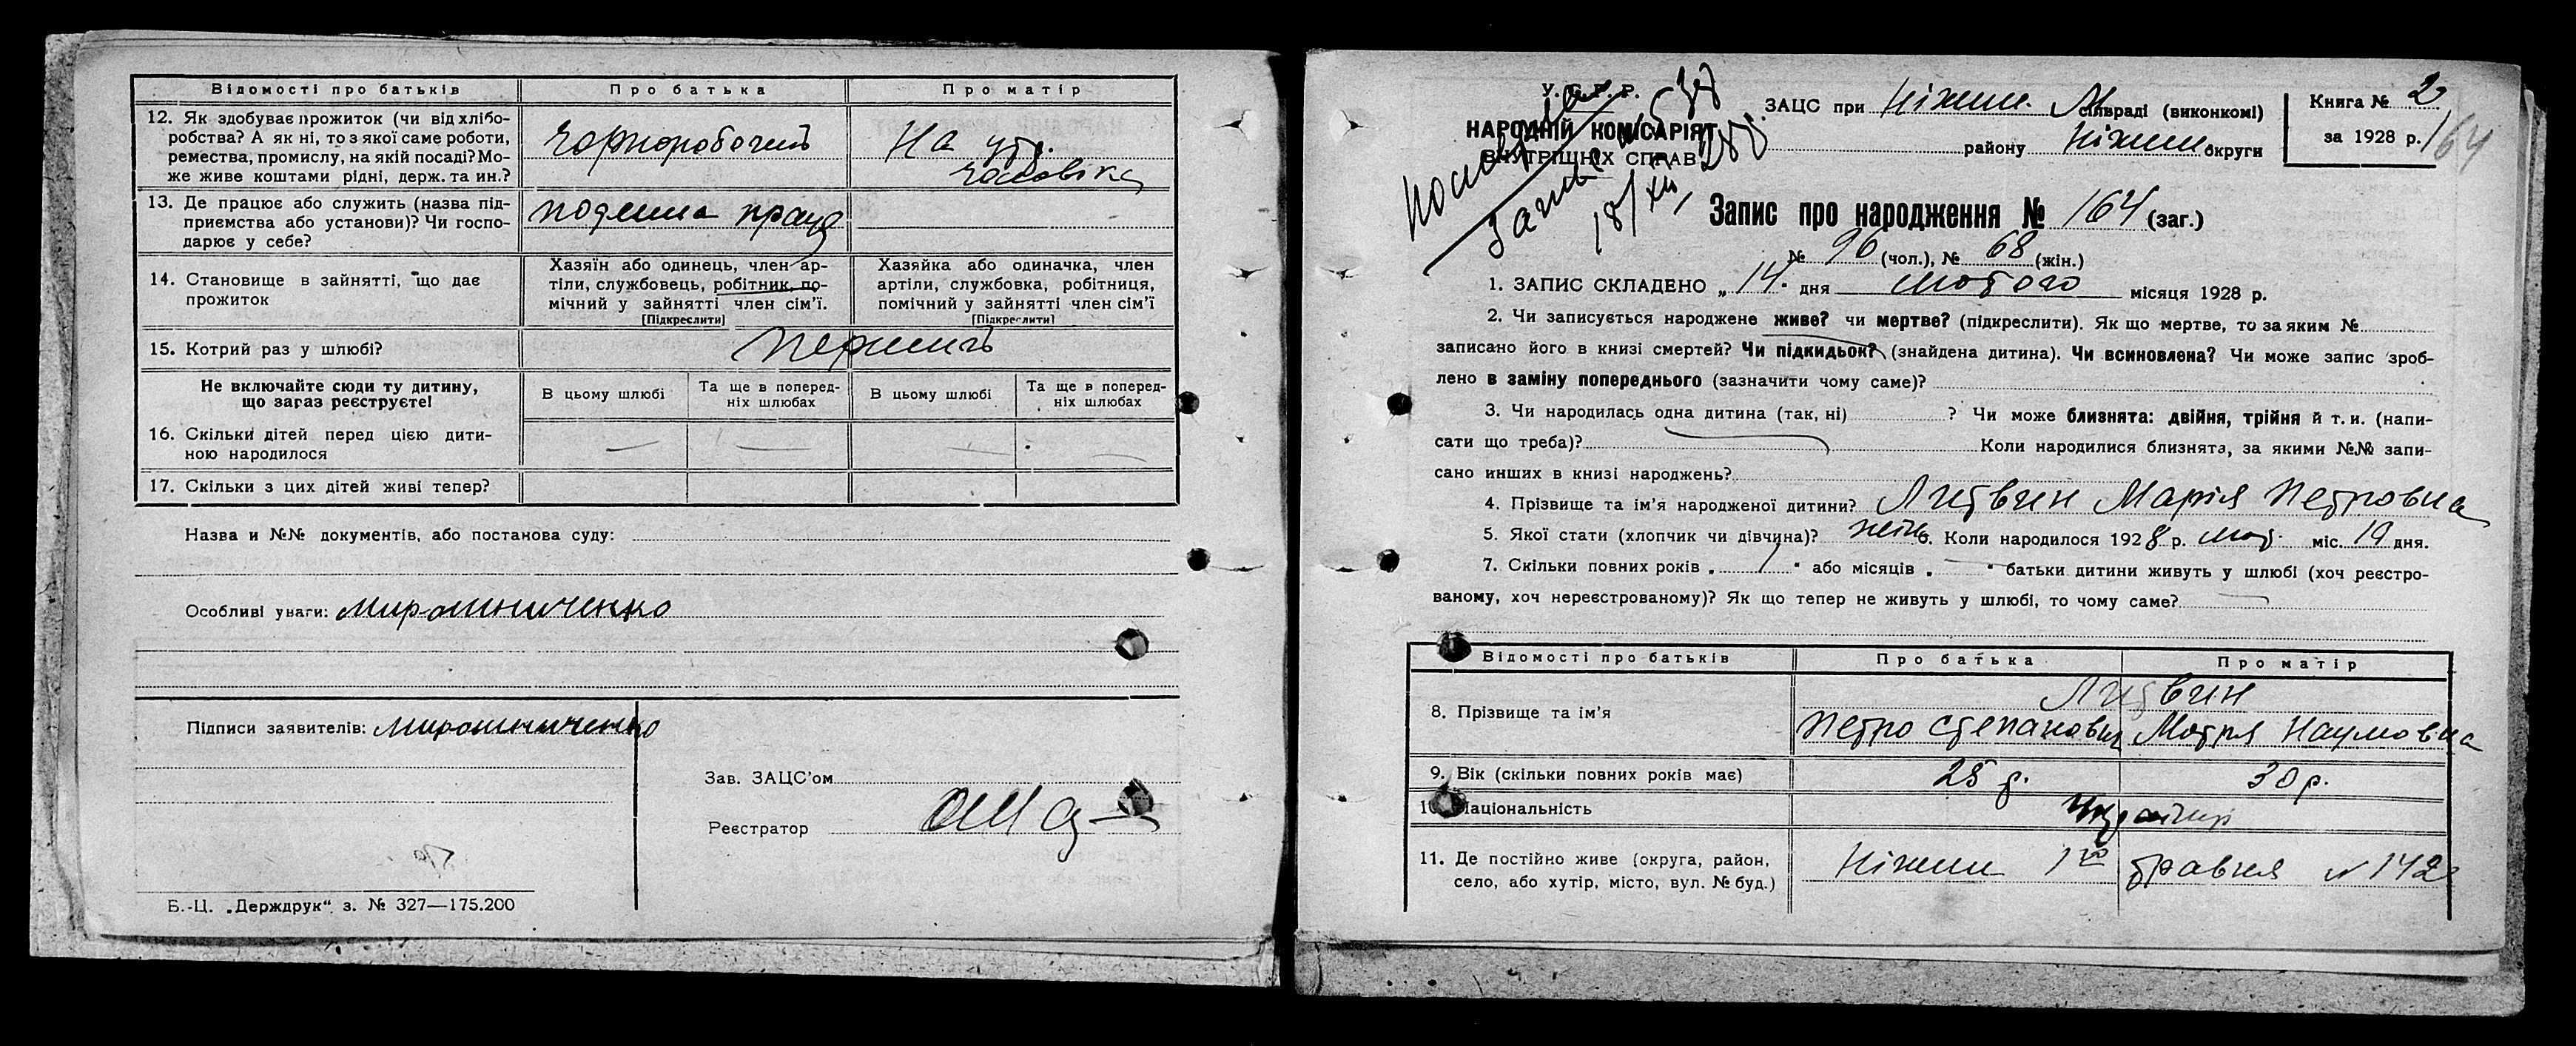 Відомості про батьків Про батька Про матір
12. Як здобуває прожиток (чи від хлібо-
робства? А як ні, то з якої саме роботи,
ремества, промислу, на якій посаді? Мо-
же живе коштами рідні, держ. та ин.?
Чорноробочий
На ут.
чоловіка
13. Де працює або служить (назва під-
приємства або установи)? Чи госпо-
дарює у себе?
поденна праця
14. Становище в зайнятті, що дає
прожиток
Хазяїн або одинець, член ар-
тіли, службовець, робітник, по-
мічний у зайнятті член сім'ї.
[Підкреслити]
Хазяйка або одиначка, член
артіли, службовка, робітниця,
помічний у зайнятті член сім'ї
[Підкреслити]
15. Котрий раз у шлюбі?
Не включайте сюди ту дитину,
що зараз реєструєте!
В цьому шлюбі
Та ще в поперед-
ніх шлюбах
В цьому шлюбі
Та ще в поперед-
ніх шлюбах
16. Скільки дітей перед цією дити-
ною народилося
17. Скільки з цих дітей живі тепер?
Назва и №№ документів, або постанова суду:
Особливі уваги: Мирошниченко
Підписи заявителів: Мирошниченко
Зав. ЗАЦС'ом
Реєстратор
Б.-Ц. „Держдрук“ з. № 327—175.200
У. С. Р. Р.
НАРОДНІЙ КОМІСАРІЯТ
ВНУТРІШНІХ СПРАВ
18/XII
ЗАЦС при Ніжин. М сільраді (виконкомі)
району Ніжин. округи
Книга № 2
за 1928 р.
164
Запис про народження № 164 (заг.)
№ 96 (чол.), № 68 (жін.)
1. ЗАПИС СКЛАДЕНО „ 14. дня лютого місяця 1928 р.
2. Чи записується народжене живе? чи мертве? (підкреслити). Як що мертве, то за яким №
записано його в книзі смертей? Чи підкидьок? (знайдена дитина). Чи всиновлена? Чи може запис зроб-
лено в заміну попереднього (зазначити чому саме)?
3. Чи народилась одна дитина (так, ні) ? Чи може близнята: двійня, трійня й т. и. (напи-
сати що треба)? Коли народилися близнята, за якими №№ запи-
сано инших в книзі народжень?
4. Прізвище та ім'я народженої дитини? Литвин Марія Петровна
5. Якої статі (хлопчик чи дівчина)? жін. 6. Коли народилося 1928 р. лют. міс. 19 дня.
7. Скільки повних років „ 1 “ або місяців „ “ батьки дитини живуть у шлюбі (хоч реєстро-
ваному, хоч нереєстрованому)? Як що тепер не живуть у шлюбі, то чому саме?
Відомості про батьків Про батька Про матір
8. Прізвище та ім'я
Литвин
Петро Степанович Мотря Наумовна
9. Вік (скільки повних років має) 28 р. 30 р.
10. Національність Українці
11. Де постійно живе (округа, район,
село, або хутір, місто, вул. № буд.)
Ніжин 1го травня № 142